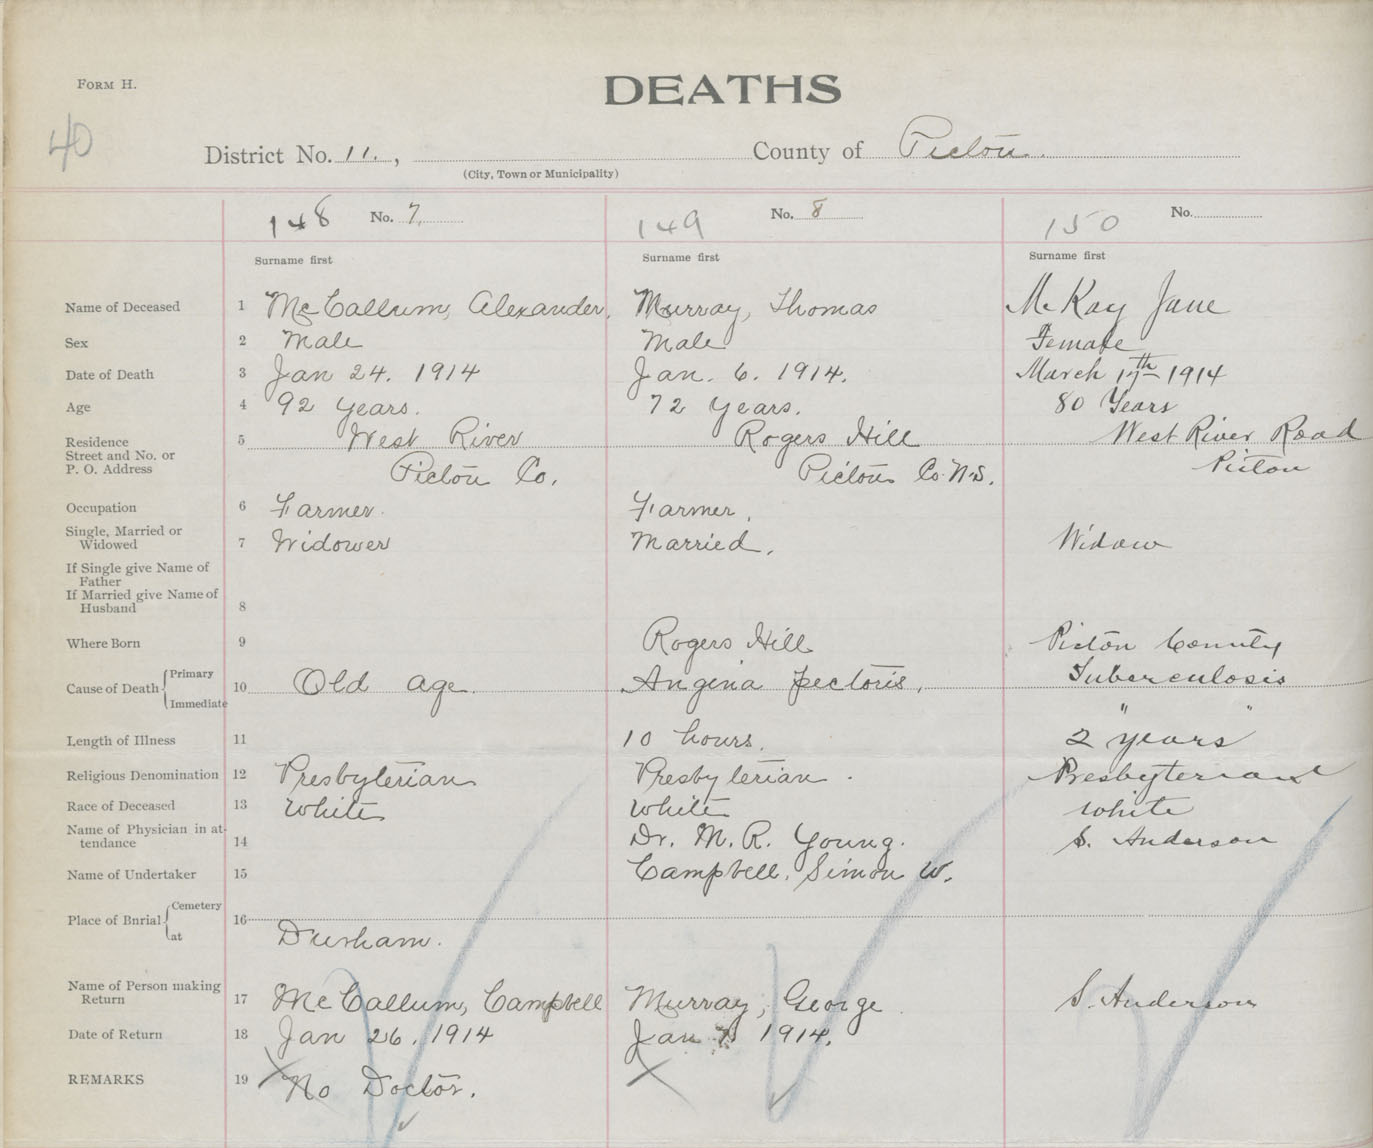 FORM H.
DEATHS
40
District No. 11. , County of Pictou.
(City, Town or Municipality)
148 No. 7. 149 No. 8 150 No.
Surname first Surname first Surname first
Name of Deceased 1 McCallum, Alexander. Murray, Thomas McKay Jane
Sex 2 Male Male Female
Date of Death 3 Jan 24. 1914 Jan. 6. 1914. March 17th 1914
Age 4 92 years. 72 years. 80 Years
Residence 5 West River Rogers Hill West River Road
Street and No. or
P. O. Address Pictou Co. Pictou Co. N.S. Pictou
Occupation 6 Farmer. Farmer.
Single, Married or
Widowed 7 Widower Married. Widow
If Single give Name of
Father
If Married give Name of
Husband 8
Where Born 9 Rogers Hill Pictou County
Cause of Death Primary 10 Old age. Angina Pectoris. Tuberculosis
Immediate " "
Length of Illness 11 10 hours. 2 years
Religious Denomination 12 Presbyterian Presbyterian. Presbyterian
Race of Deceased 13 White White White
Name of Physician in at-
tendance 14 Dr. M. R. Young. S. Anderson
Name of Undertaker 15 Campbell, Simon W.
Place of Bnrial Cemetery 16
at Durham.
Name of Person making
Return 17 McCallum, Campbell Murray, George. S. Anderson
Date of Return 18 Jan 26. 1914 Jan 7. 1914.
REMARKS 19 No Doctor.